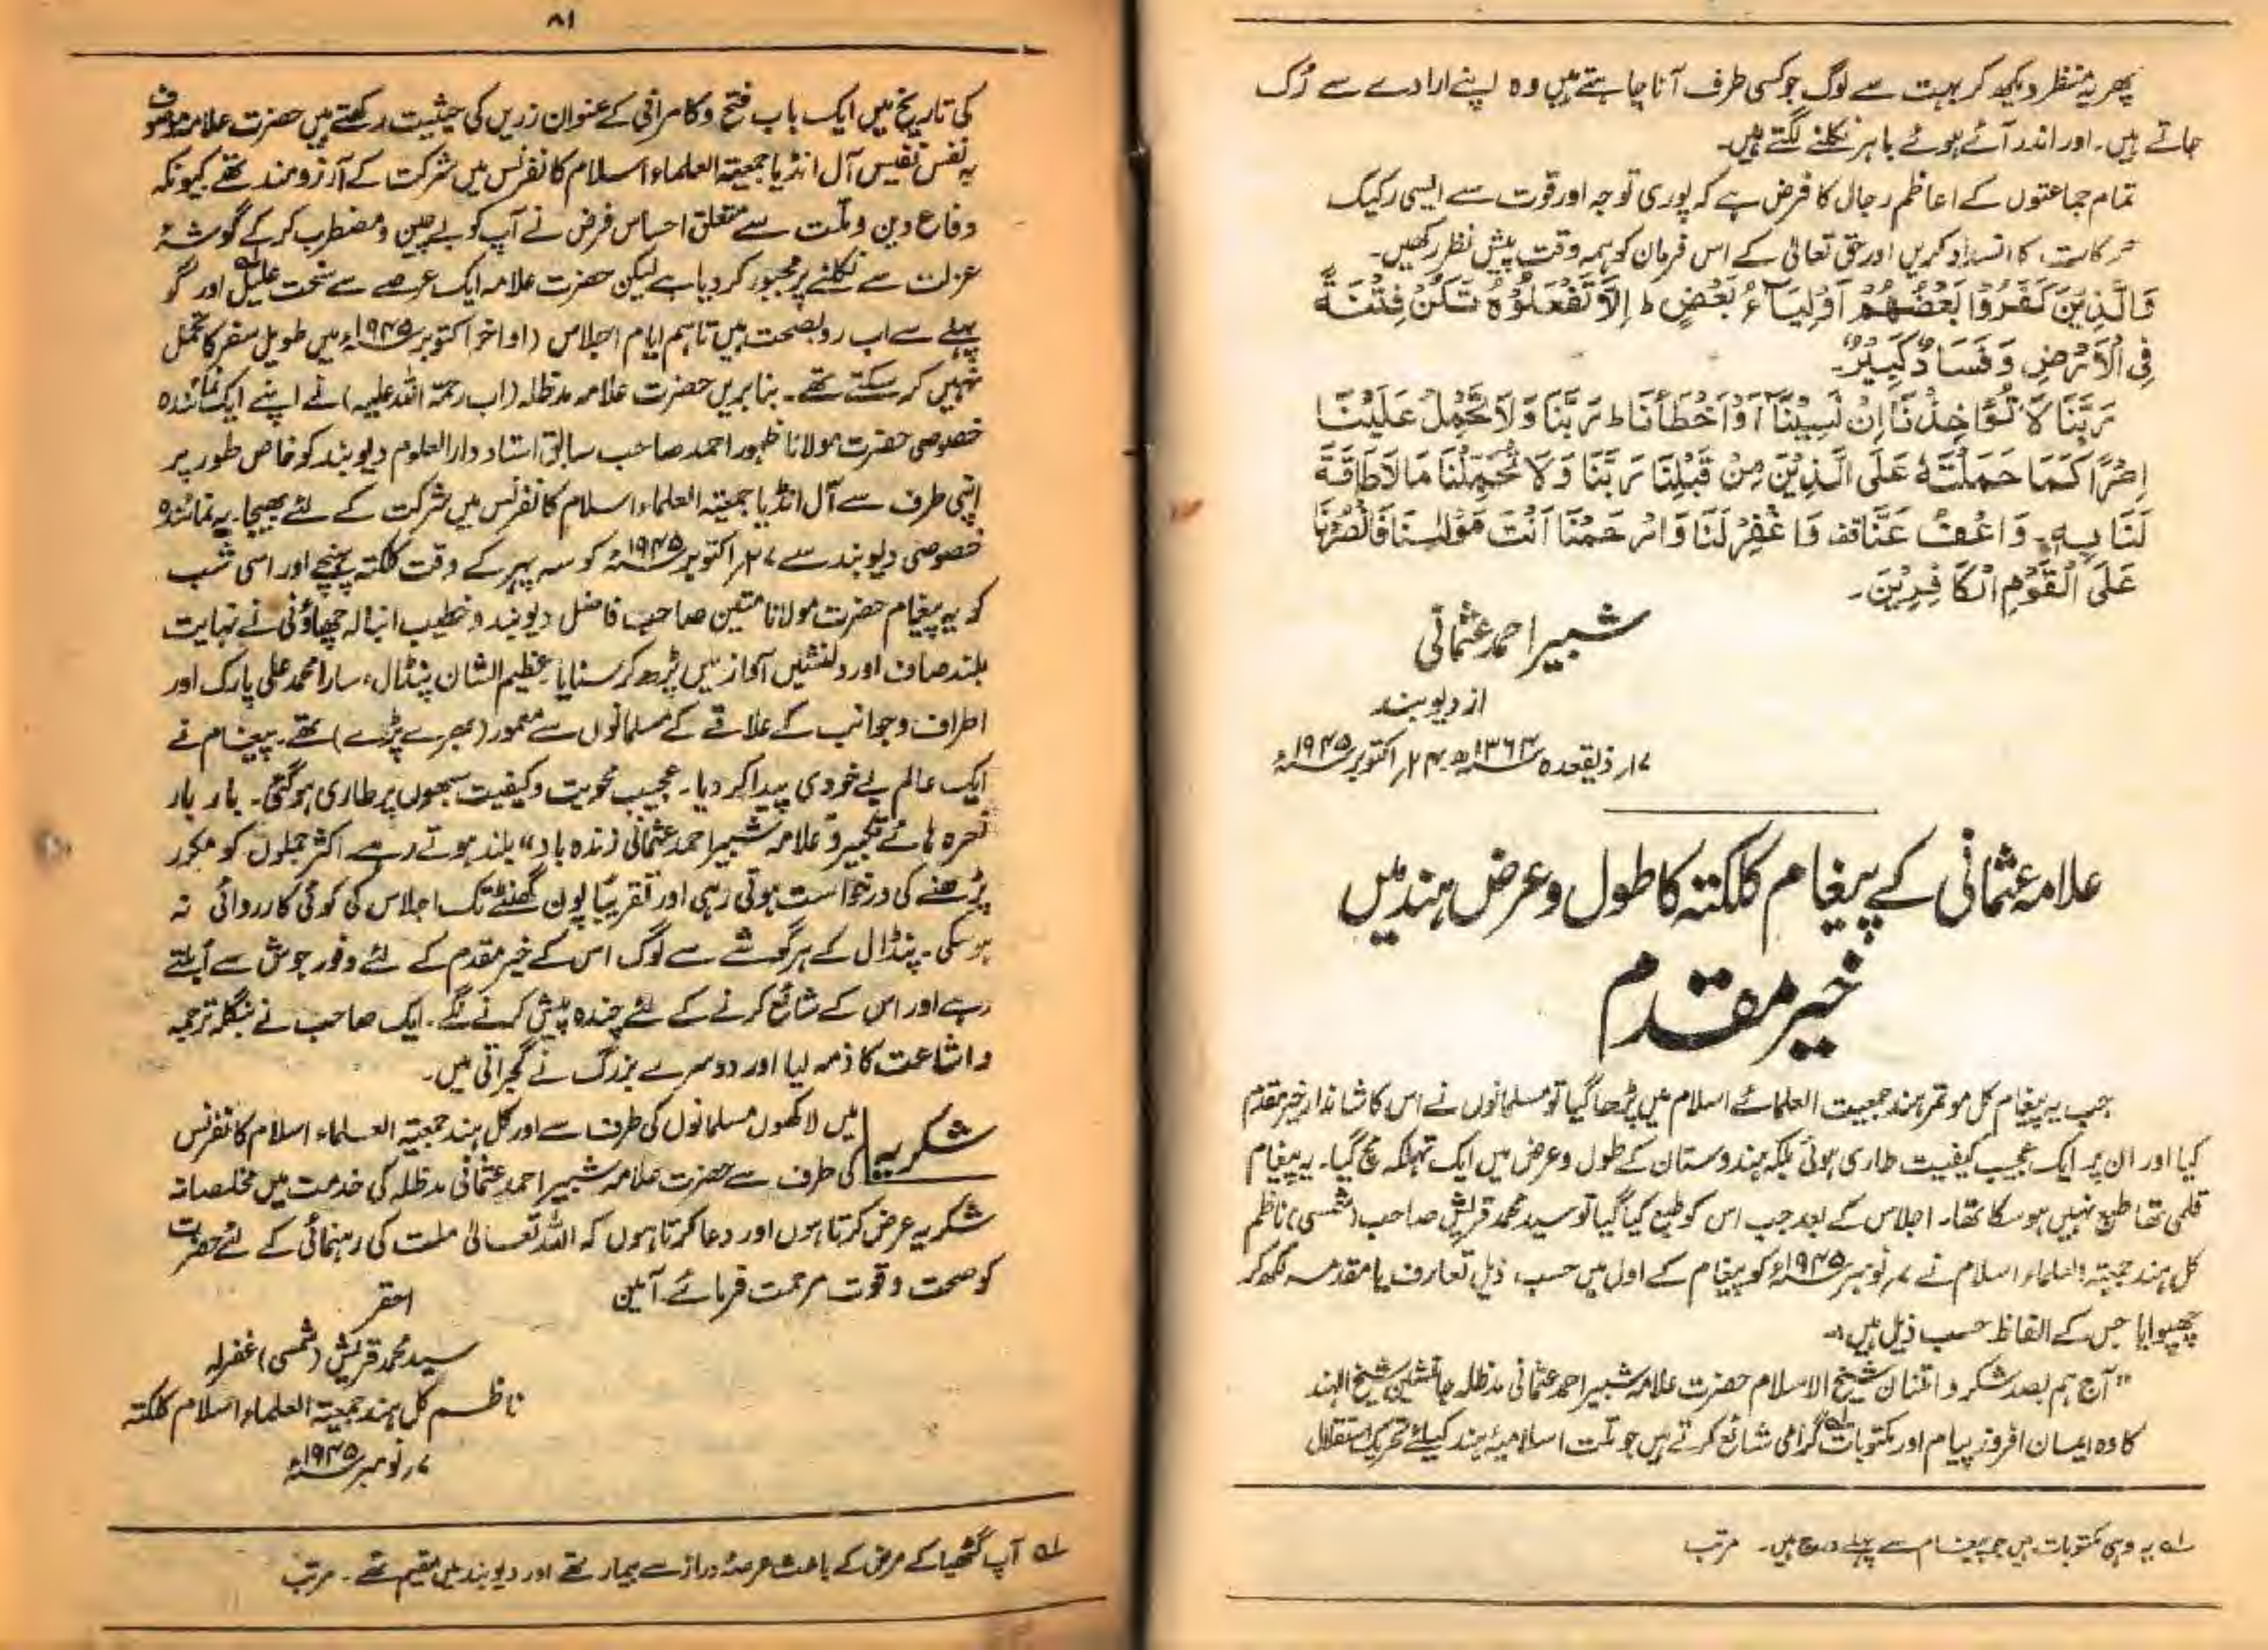 پھر یہ منظر دیکھ کر بہت سے لوگ جو کسی طرف آنا چاہتے ہیں وہ اپنے ارادے سے رُک
جاتے ہیں۔ اور اندر آئے ہوئے باہر نکلنے لگتے ہیں۔
تمام جماعتوں کے اعاظم رجال کا فرض ہے کہ پوری توجہ اور قوت سے ایسی رکیک
حرکات کا انسداد کریں اور حق تعالیٰ کے اس فرمان کو ہمہ وقت پیش نظر رکھیں۔
وَالَّذِیْنَ کَفَرُوْا بَعْضُهُمْ اَوْلِیَآءُ بَعْضٍ ط اِلَّا تَفْعَلُوْهُ تَکُنْ فِتْنَةٌ
فِی الْاَرْضِ وَفَسَادٌ کَبِیْرٌ۔
رَبَّنَا لَا تُؤَاخِذْنَا اِنْ نَّسِیْنَا اَوْ اَخْطَأْنَا ط رَبَّنَا وَلَا تَحْمِلْ عَلَیْنَا
اِصْرًا کَمَا حَمَلْتَهٗ عَلَی الَّذِیْنَ مِنْ قَبْلِنَا رَبَّنَا وَلَا تُحَمِّلْنَا مَا لَا طَاقَةَ
لَنَا بِهٖ۔ وَاعْفُ عَنَّا قف وَاغْفِرْ لَنَا وَارْحَمْنَا اَنْتَ مَوْلٰىنَا فَانْصُرْنَا
عَلَی الْقَوْمِ الْکَافِرِیْنَ۔
شبیر احمد عثمانی
از دیوبند
۱۷ر ذیقعدہ ۱۳۶۴ھ ۲۴ر اکتوبر ۱۹۴۵ء
علامہ عثمانی کے پیغام کلکتہ کا طول و عرض ہند میں
خیر مقدم
جب یہ پیغام کل موتمر ہند جمعیت العلمائے اسلام میں پڑھا گیا تو مسلمانوں نے اس کا شاندار خیر مقدم
کیا اور ان پر ایک عجیب کیفیت طاری ہوئی بلکہ ہندوستان کے طول و عرض میں ایک تہلکہ مچ گیا۔ یہ پیغام
قلمی تھا طبع نہیں ہوسکا تھا۔ اجلاس کے بعد جب اس کو طبع کیا گیا تو سید محمد قریش صاحب (شمسی) ناظم
کل ہند جمعیۃ العلماء اسلام نے ۷ر نومبر ۱۹۴۵ء کو پیغام کے اول میں حسب ذیل تعارف یا مقدمہ لکھ کر
چھپوایا جس کے الفاظ حسب ذیل ہیں:۔
"آج ہم بصد شکر و امتنان شیخ الاسلام حضرت علامہ شبیر احمد عثمانی مدظلہ جانشین شیخ الہند
کا وہ ایمان افروز پیام اور مکتوبات؎۱ گرامی شائع کرتے ہیں جو ملت اسلامیۂ ہند کیلئے تحریک استقلال
؎۱ یہ وہی مکتوبات ہیں جو پیغام سے پہلے درج ہیں۔ مرتب
۸۱
کی تاریخ میں ایک باب فتح و کامرانی کے عنوان زریں کی حیثیت رکھتے ہیں حضرت علامہ موصوف
بہ نفس نفیس آل انڈیا جمعیۃ العلماء اسلام کانفرنس میں شرکت کے آرزومند تھے کیونکہ
دفاع دین و ملت سے متعلق احساس فرض نے آپ کو بے چین و مضطرب کر کے گوشۂ
عزلت سے نکلنے پر مجبور کر دیا ہے لیکن حضرت علامہ ایک عرصے سے سخت علیل؎۱ اور گو
پہلے سے اب رو بصحت ہیں تاہم ایام اجلاس (اواخر اکتوبر ۱۹۴۵ء) میں طویل سفر کا تحمل
نہیں کر سکتے تھے۔ بنا بریں حضرت علامہ مدظلہ (اب رحمۃ اللہ علیہ) نے اپنے ایک نمائندہ
خصوصی حضرت مولانا ظہور احمد صاحب سابق استاد دارالعلوم دیوبند کو خاص طور پر
اپنی طرف سے آل انڈیا جمعیۃ العلماء اسلام کانفرنس میں شرکت کے لئے بھیجا۔ یہ نمائندہ
خصوصی دیوبند سے ۲۷ر اکتوبر ۱۹۴۵ء کو سہ پہر کے وقت کلکتہ پہنچے اور اسی شب
کو یہ پیغام حضرت مولانا متین صاحب فاضل دیوبند و خطیب انبالہ چھاؤنی نے نہایت
بلند صاف اور دلنشیں آواز میں پڑھ کر سنایا۔ عظیم الشان پنڈال، سارا محمد علی پارک اور
اطراف و جوانب کے علاقے کے مسلمانوں سے معمور (بھرے پڑے) تھے۔ پیغام نے
ایک عالم بے خودی پیدا کر دیا۔ عجیب محویت و کیفیت سبھوں پر طاری ہوگئی۔ بار بار
نعرہ ہائے تکبیر و علامہ شبیر احمد عثمانی زندہ باد" بلند ہوتے رہے اکثر جملوں کو مکرر
پڑھنے کی درخواست ہوتی رہی اور تقریباً پون گھنٹے تک اجلاس کی کوئی کارروائی نہ
ہوسکی۔ پنڈال کے ہر گوشے سے لوگ اس کے خیر مقدم کے لئے وفور جوش سے اُبلتے
رہے اور اس کے شائع کرنے کے لئے چندہ پیش کرنے لگے۔ ایک صاحب نے بنگلہ ترجمہ
و اشاعت کا ذمہ لیا اور دوسرے بزرگ نے گجراتی میں۔
شکریہ میں لاکھوں مسلمانوں کی طرف سے اور کل ہند جمعیۃ العلماء اسلام کانفرنس
کی طرف سے حضرت علامہ شبیر احمد عثمانی مدظلہ کی خدمت میں مخلصانہ
شکریہ عرض کرتا ہوں اور دعا کرتا ہوں کہ اللہ تعالیٰ ملت کی رہنمائی کے لئے حضرت
کو صحت و قوت مرحمت فرمائے۔ آمین
احقر
سید محمد قریش (شمسی) غفرلہ
ناظم کل ہند جمعیۃ العلماء اسلام کلکتہ
۷ر نومبر ۱۹۴۵ء
؎۱ آپ گٹھیا کے مرض کے باعث عرصۂ دراز سے بیمار تھے اور دیوبند میں مقیم تھے۔ مرتب